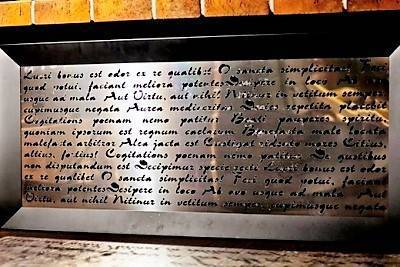 Lucri bonus est odor ex re qualibet O sancta simplicitas! Feci
quod potui, faciant meliora potentes Desipere in loco Ab ovo
usque ad mala Aut Virtu, aut nihil Nitinur in vetitum semper,
cupimusque negata Aurea mediocritas Decies repetita placebit
Cogitations poenam nemo patitur Beati pauperes spiritu,
quoniam ipsorum est regnum caelorum Benefacta male locata
malefacta arbitror Alea jacta est Castigat ridendo mores Citius,
altius, fortius! Cogitations poenam nemo patitur De gustibus
non disputandum est Decipimur specie recti Lucri bonus est odor
ex re qualibet O sancta simplicitas! Feci quod potui, faciant
meliora potentes Desipere in loco Ab ovo usque ad mala Aut
Virtu, aut nihil Nitinur in vetitum semper, cupimusque negata